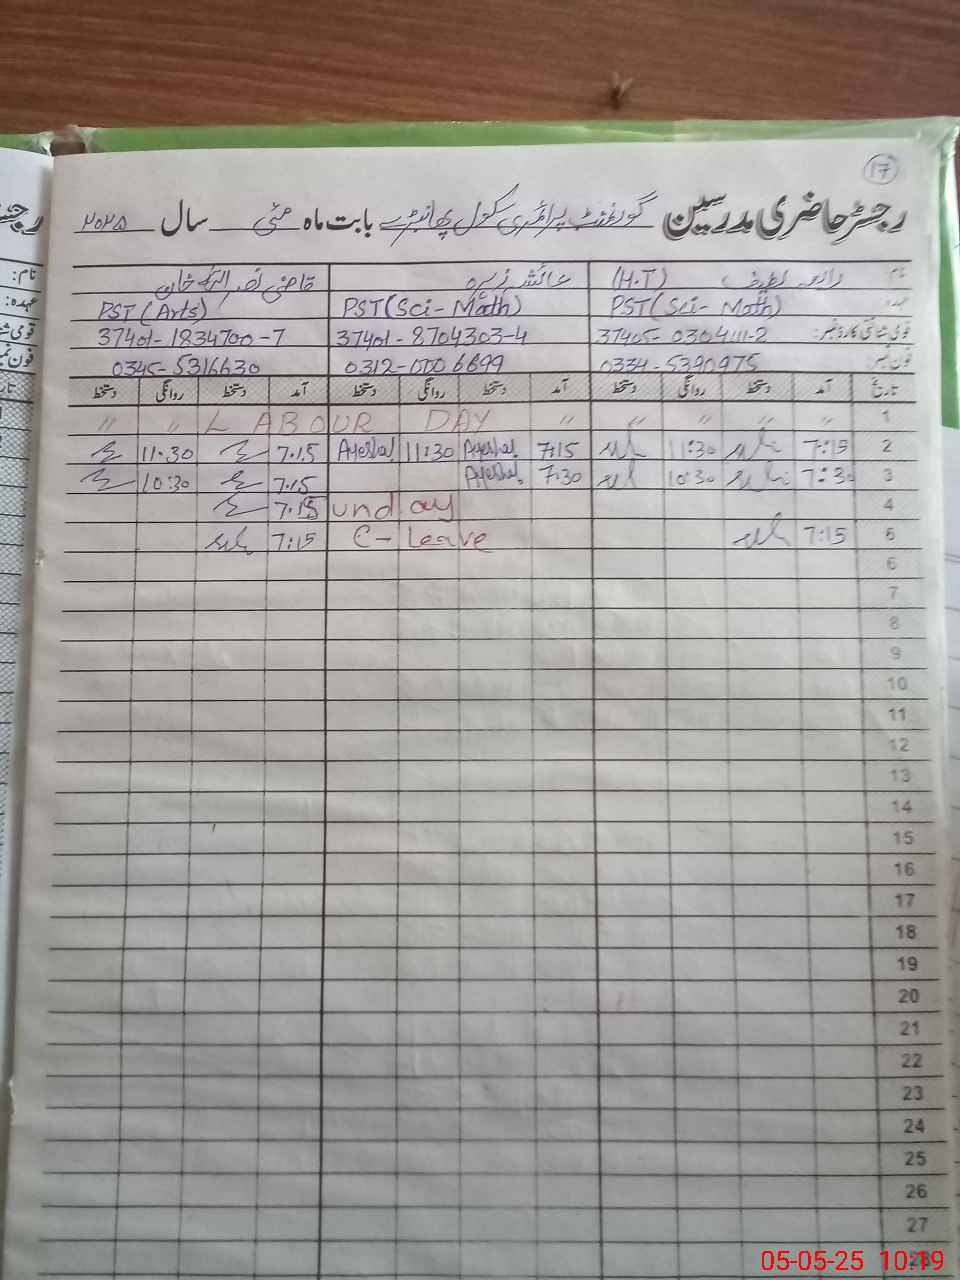 17
رجسٹر حاضری مدرسین گورنمنٹ پرائمری سکول بابت ماہ مئی سال ۲۰۲۵
نام: رابعہ لطیف (H.T) عائشہ زہرہ قاضی نصر
عہدہ: PST (Sci- Math) PST (Sci- Math) PST (Arts)
قومی شناختی کارڈ نمبر: 37405-0304111-2 37401-8704303-4 37401-1834700-7
فون نمبر: 0334-5390975 0312-0006699 0345-5316630
تاریخ آمد دستخط روانگی دستخط آمد دستخط روانگی دستخط آمد دستخط روانگی دستخط
1 〃 〃 〃 〃 〃 LABOUR DAY 〃 〃
2 7:15 11:30 7:15 Ayesha 11:30 Ayesha 7.15 11.30
3 7:30 10:30 7:30 Ayesha 7.15 10:30
4 unday 7.15
5 7:15 C-Leave 7:15
6
7
8
9
10
11
12
13
14
15
16
17
18
19
20
21
22
23
24
25
26
27
28
05-05-25 10:19